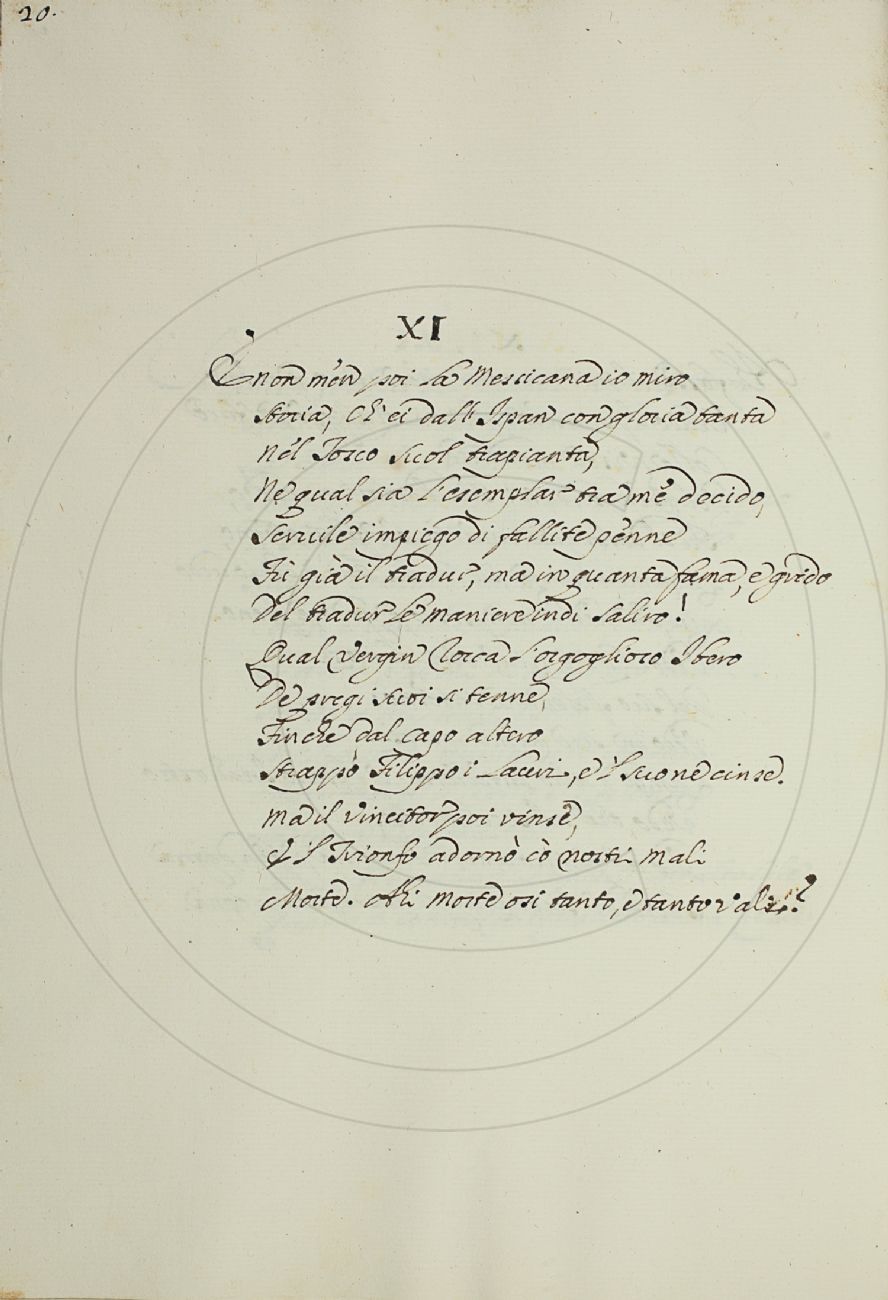 20.
XI
E non men poi la Messicana io miro
Storia, Ch'ei dall' Ispan con gloria tanta
Nel Tosco suol trapianta,
Ne qual sia l'esemplar tra me decido,
Servile impiego di fallite penne
Fù già il tradur, ma in quanta fama, e grido
Del tradur le maniere indi saliro!
Qual Vergin Tosca l'orgoglioso Ibero
De pregi suoi si tenne,
Finche dal capo altero
Strappò Filippo i Lauri, e 'l suo ne cinse.
Ma il vincitor poi vinse,
E 'l Trionfo adornò cò nostri mali
Morte. Ahi morte osi tanto, e tanto vali?